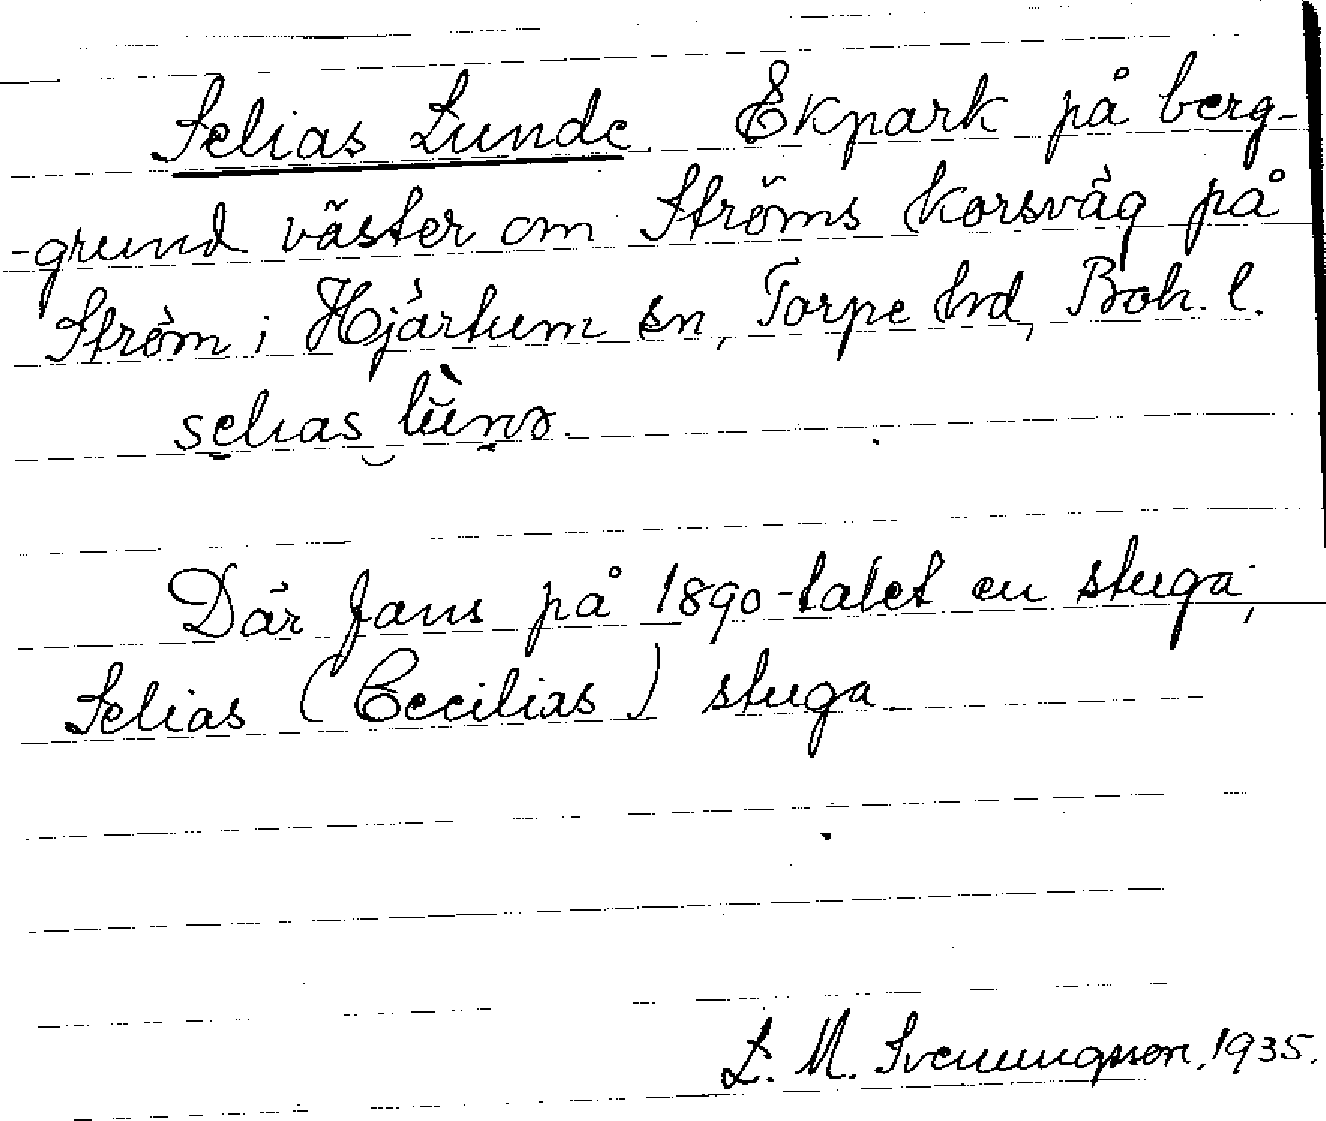 Selias Lunde. Ekpark på berg-
-grund väster om Ströms korsväg på
Ström i Hjärtum sn, Torpe hd, Boh. l.
selias lùnə.
Där fans på 1890-talet en stuga,
Selias (Cecilias) stuga
L. M. Svenungsson, 1935.